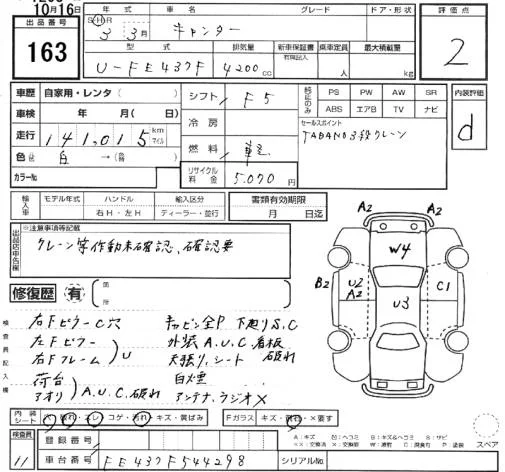 10月16日
出品番号
163
年式 車名 グレード ドア・形状
S・H・R 3 3月 キャンター
型式 排気量 新車保証書 乗車定員 最大積載量
有限記入
U-FE437F 4200cc 人 kg
評価点
2
内装評価
d
車歴 自家用・レンタ( )
車検 年 月( 日)
走行 141,015 km マイル
色 白 →( )
カラーNo.
シフト F5
冷房
燃料 軽
リサイクル料金 5,070
純正のみ PS PW AW SR
ABS エアB TV ナビ
セールスポイント
TADANO3段クレーン
輸入車 モデル年式 ハンドル 輸入区分
右H・左H ディーラー・並行
書類有効期限
月 日迄
出品店申告欄
※注意事項等記載
クレーン等作動未確認、確認要
修復歴 有 箇所
検査員記入欄
右Fピラー C穴
左Fピラー
右Fフレーム U
荷台
アオリ A.U.C.破れ
キャビン全P 下廻りS.C
外装A.U.C.看板
天張り、シート 破れ
白煙
アンテナ、ラジオ×
A2 A2
W4
B2 U2 A2 U3 C1
A2 A2
内装シート 穴・破れ・スレ・コゲ・汚れ・キズ・黄ばみ
Fガラス キズ・飛石・×要す
A:キズ U:ヘコミ B:キズ&ヘコミ S:サビ
××:交換済 X:交換要 W:波打 C:腐食有 P:塗装
スペア
検査員
11
登録番号
車台番号 FE437F544298
シリアルNo.